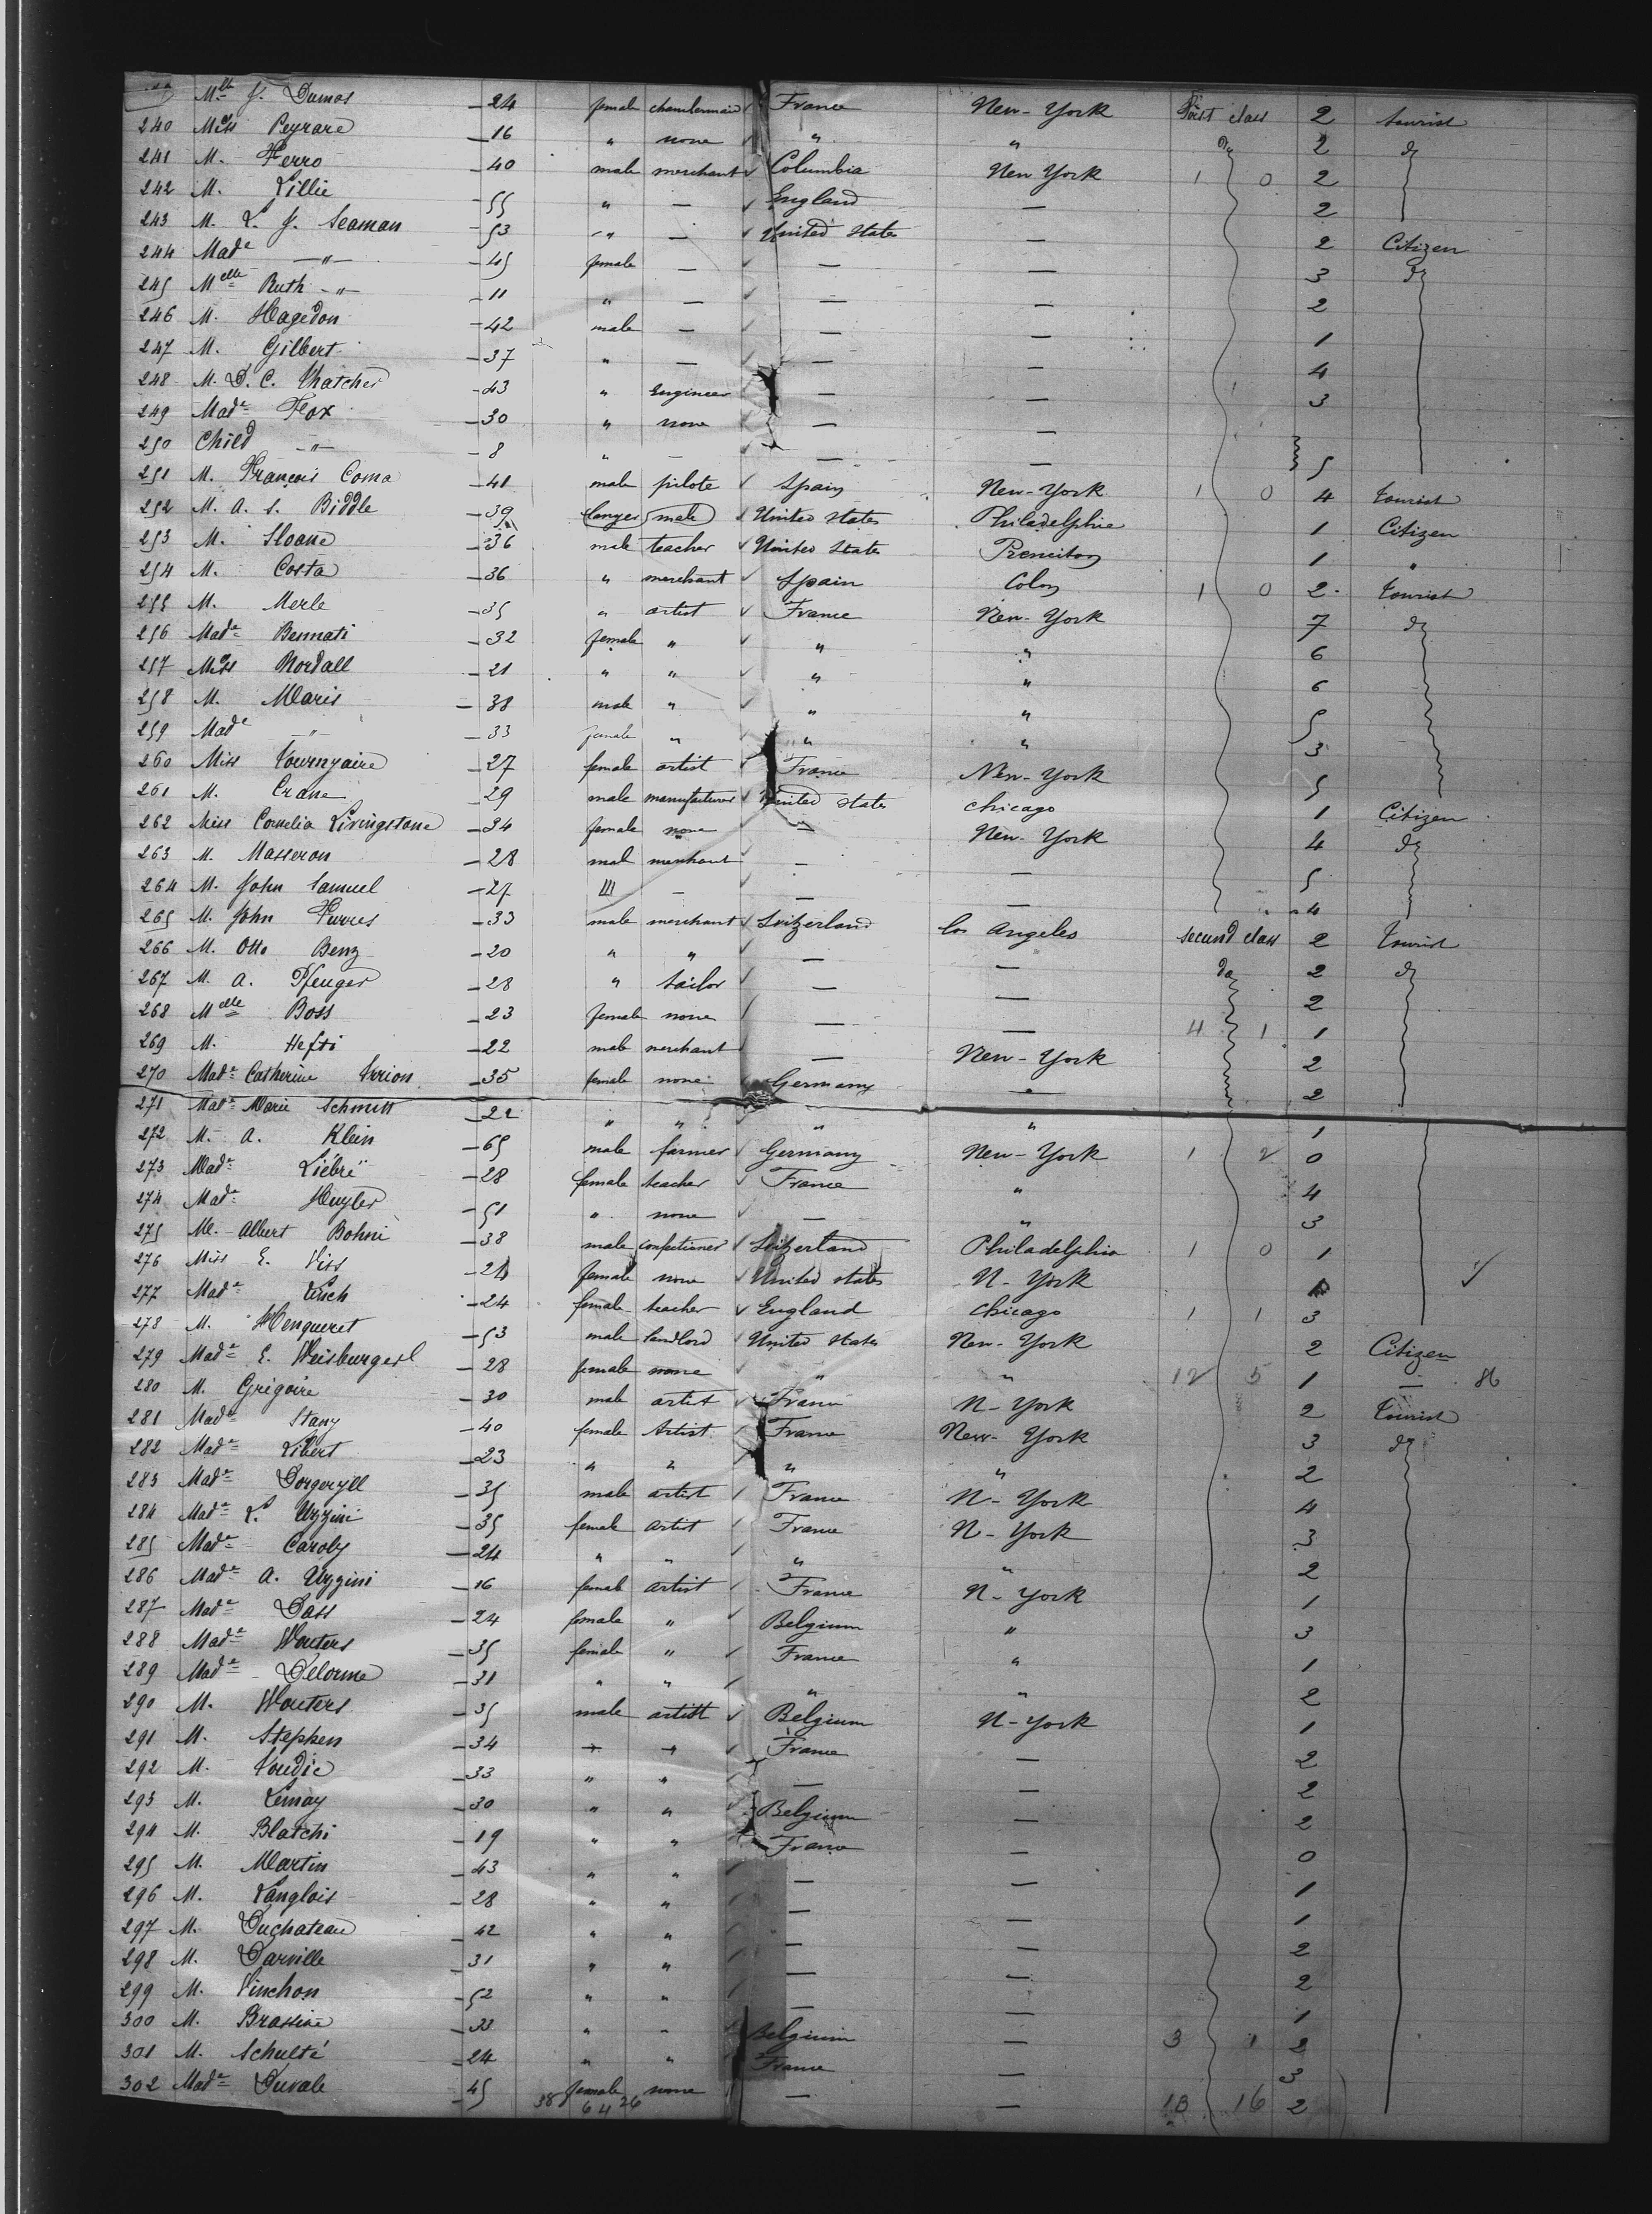 Mlle J. Dumas — 24 female chambermaid France New-York First class 2 tourist
240 Miss Peyrare — 16 " none " " do 2 do
241 M. Ferro — 40 male merchant Columbia New York 1 0 2
242 M. Lillie — 55 " — England — 2
243 M. L. J. Seaman — 53 " — United States — 2 Citizen
244 Made —"— — 45 female — — — 3 do
245 Melle Ruth —"— — 11 " — — — 2
246 M. Hagedon — 42 male — — — 1
247 M. Gilbert — 37 " — — — 4
248 M. D. C. Thatcher — 43 " Engineer — — 3
249 Made Fox — 30 " none — —
250 Child —"— — 8 " — — — 5
251 M. François Coma — 41 male pilote Spain New-York 1 0 4 tourist
252 M. A. S. Biddle — 39 lawyer male United States Philadelphie 1 Citizen
253 M. Sloane — 36 male teacher United States 1 "
254 M. Costa — 36 " merchant Spain Colon 1 0 2 tourist
255 M. Merle — 35 " artist France New-York 7 do
256 Made Bennati — 32 female " " " 6
257 Miss Nordall — 21 " " " " 6
258 M. Maris — 38 male " " " 5
259 Made —"— — 33 female " " " 3
260 Miss Tournyaire — 27 female artist France New-York 5
261 M. Crane — 29 male manufacturer United States Chicago 1 Citizen
262 Miss Cornelia Livingstone — 34 female none — New-York 4 do
263 M. Masseron — 28 mal merchant — — 5
264 M. John Samuel — 27 — — — 4
265 M. John Furres — 33 male merchant Switzerland los Angeles second class 2 tourist
266 M. Otto Benz — 20 " " — — do 2 do
267 M. A. Pfenger — 28 " tailor — — 2
268 Melle Boss — 23 female none — — 4 1 1
269 M. Hefti — 22 male merchant — New-York 2
270 Made Catherine Irrion — 35 female none Germany — 2
271 Made Marie Schmitt — 22 " " " " 1
272 M. A. Klein — 65 male farmer Germany New-York 1 2 0
273 Made Liebré — 28 female teacher France " 4
274 Made Huyler — 51 " none — " 3
275 M. Albert Bohni — 38 male confectioner Switzerland Philadelphia 1 0 1
276 Miss E. Viss — 24 female none United States N-York
277 Made Linch — 24 female teacher England Chicago 1 1 3
278 M. Henqueret — 53 male landlord United States New-York 2 Citizen
279 Made E. Weisburgerl — 28 female none " " 12 5 1 — 86
280 M. Grégoire — 30 male artist France N-York 2 tourist
281 Made Stany — 40 female Artist France New-York 3 do
282 Made Libert — 23 " " " " 2
283 Made Dorgeryll — 35 male artist France N-York 4
284 Made L. Uzzini — 35 female artist France N-York 3
285 Made Caroly — 24 " " " " 2
286 Made A. Uzzini — 16 female artist France N-York 1
287 Made Dass — 24 female " Belgium " 3
288 Made Wouters — 35 female " France " 1
289 Made Delorme — 31 " " " " 2
290 M. Wouters — 35 male artist Belgium N-York 1
291 M. Stephen — 34 " " France — 2
292 M. Verdic — 33 " " — — 2
293 M. Lemay — 30 " " Belgium — 2
294 M. Blatchi — 19 " " France — 0
295 M. Martin — 43 " " — — 1
296 M. Langlois — 28 " " — — 1
297 M. Duchateau — 42 " " — — 2
298 M. Darville — 31 " " — — 2
299 M. Vinchon — 52 " " — — 1
300 M. Brassine — 33 " " Belgium — 3 1 2
301 M. Schulté — 24 " " France — 3
302 Made Duvale — 45 female none — — 13 16 2
38 64 26